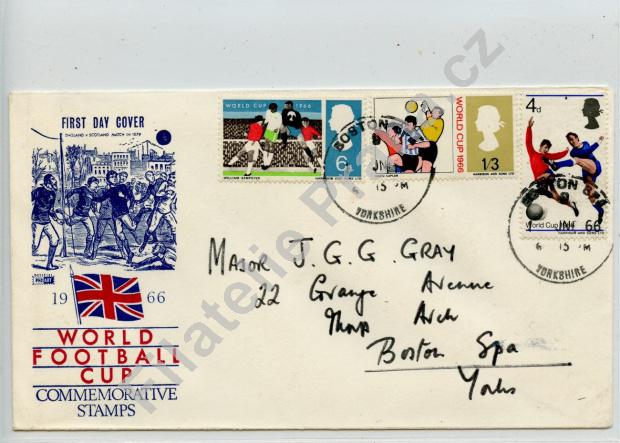 FIRST DAY COVER
ENGLAND v SCOTLAND MATCH IN 1879
OFFICIAL
1966
WORLD
FOOTBALL
CUP
COMMEMORATIVE
STAMPS
WORLD CUP 1966
6D
WILLIAM KEMPSTER
HARRISON AND SONS LTD
WORLD CUP 1966
1/3
HARRISON AND SONS LTD
4d
World Cup 1966
HARRISON AND SONS LTD
BOSTON
JN
15 PM
YORKSHIRE
BOSTON SPA
JN 66
6 15 PM
YORKSHIRE
MAJOR J. G. G. GRAY
22 Grange Avenue
Thorp Arch
Boston Spa
Yorks
Filatelie Praha.cz